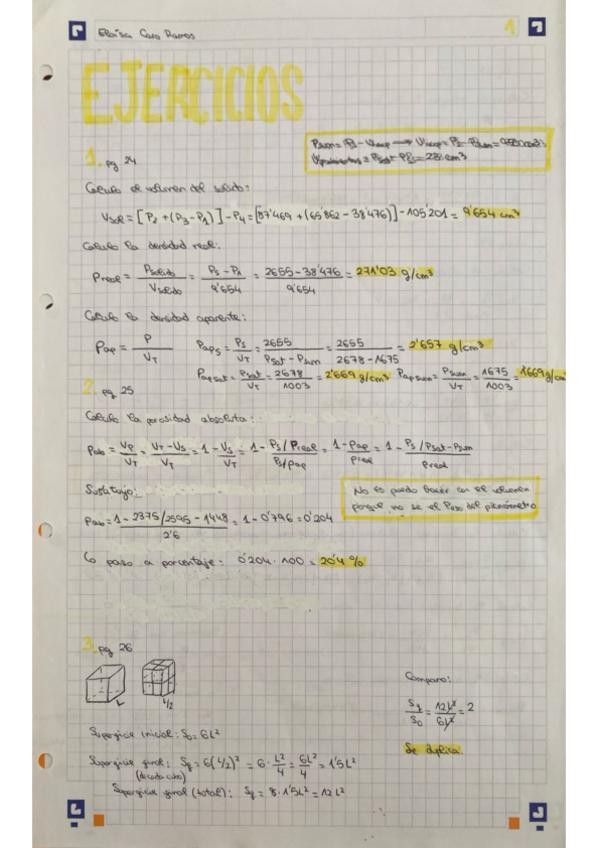 Eloísa Caro Ramos
1
EJERCICIOS
1. pg 24
Calculo el volumen del solido:
Vsol = [P2 + (P3 - P1)] - P4 = [87'469 + (65'862 - 38'476)] - 105'201 = 9'654 cm³
Calculo la densidad real:
ρreal = Psolido / Vsolido = Ps - P1 / 9'654 = 2655 - 38'476 / 9'654 = 271'03 g/cm³
Calculo la densidad aparente:
ρap = P / VT   ρap s = Ps / VT = 2655 / Psat - Psum = 2655 / 2678 - 1675 = 2'657 g/cm³
ρap sat = Psat / VT = 2678 / 1003 = 2'669 g/cm³   ρap sum = Psum / VT = 1675 / 1003 = 1'669 g/cm
2. pg 25
Calculo la porosidad absoluta:
Pab = Vp / VT = VT - Vs / VT = 1 - Vs / VT = 1 - Ps/ρreal / Ps/ρap = 1 - ρap / ρreal = 1 - Ps/Psat - Psum / ρreal
Sustituyo:
No se puede hacer con el volumen
porque no se el Peso del picnómetro
Pab = 1 - 2375/2595 - 1448 / 2'6 = 1 - 0'796 = 0'204
Lo paso a porcentaje: 0'204 · 100 = 20'4 %
3. pg 26
L
L/2
Comparo:
Sf / S0 = 12L² / 6L² = 2
Se duplica
Superficie inicial: S0 = 6L²
Superficie final: Sf = 6(L/2)² = 6 · L²/4 = 6L²/4 = 1'5L²
(de cada cubo)
Superficie final (total): Sf = 8 · 1'5L² = 12L²